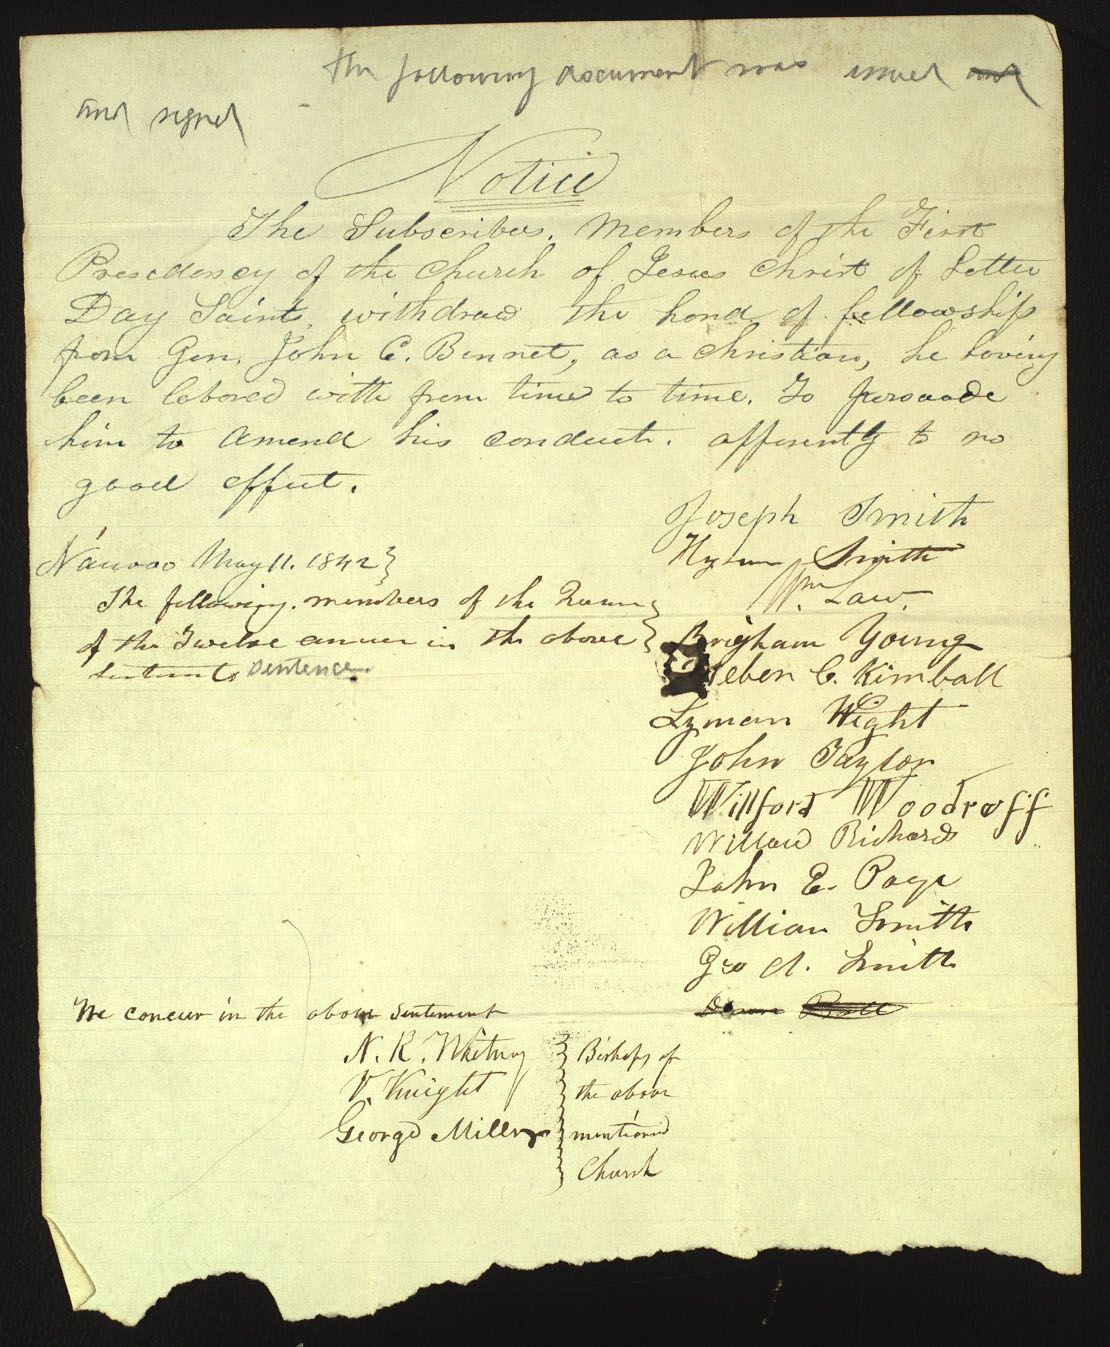 The following document was issued and
and signed
Notice
The Subscribers. Members of the First
Presedency of the Church of Jesus Christ of Letter
Day Saints, withdraw the hand of fellowship
from Gen. John C. Bennet, as a Christian, he having
been labored with from time to time. To persuade
him to amend his conduct. apperently to no
good effect.
Joseph Smith
Hyrum Smith
Wm Law.
Nauvoo May 11. 1842
The following. members of the Quorum
of the Twelve concur in the above
sentence
Brigham Young
Heber C. Kimball
Lyman Wight
John Taylor
Wilford Woodruff
Willard Richards
John E. Page
William Smith
Geo A. Smith
We concur in the above sentement
N. K. Whitney
V. Knight
George Miller
Bishops of
the above
mentioned
Church